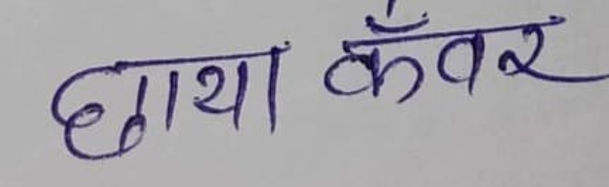 छाया कँवर